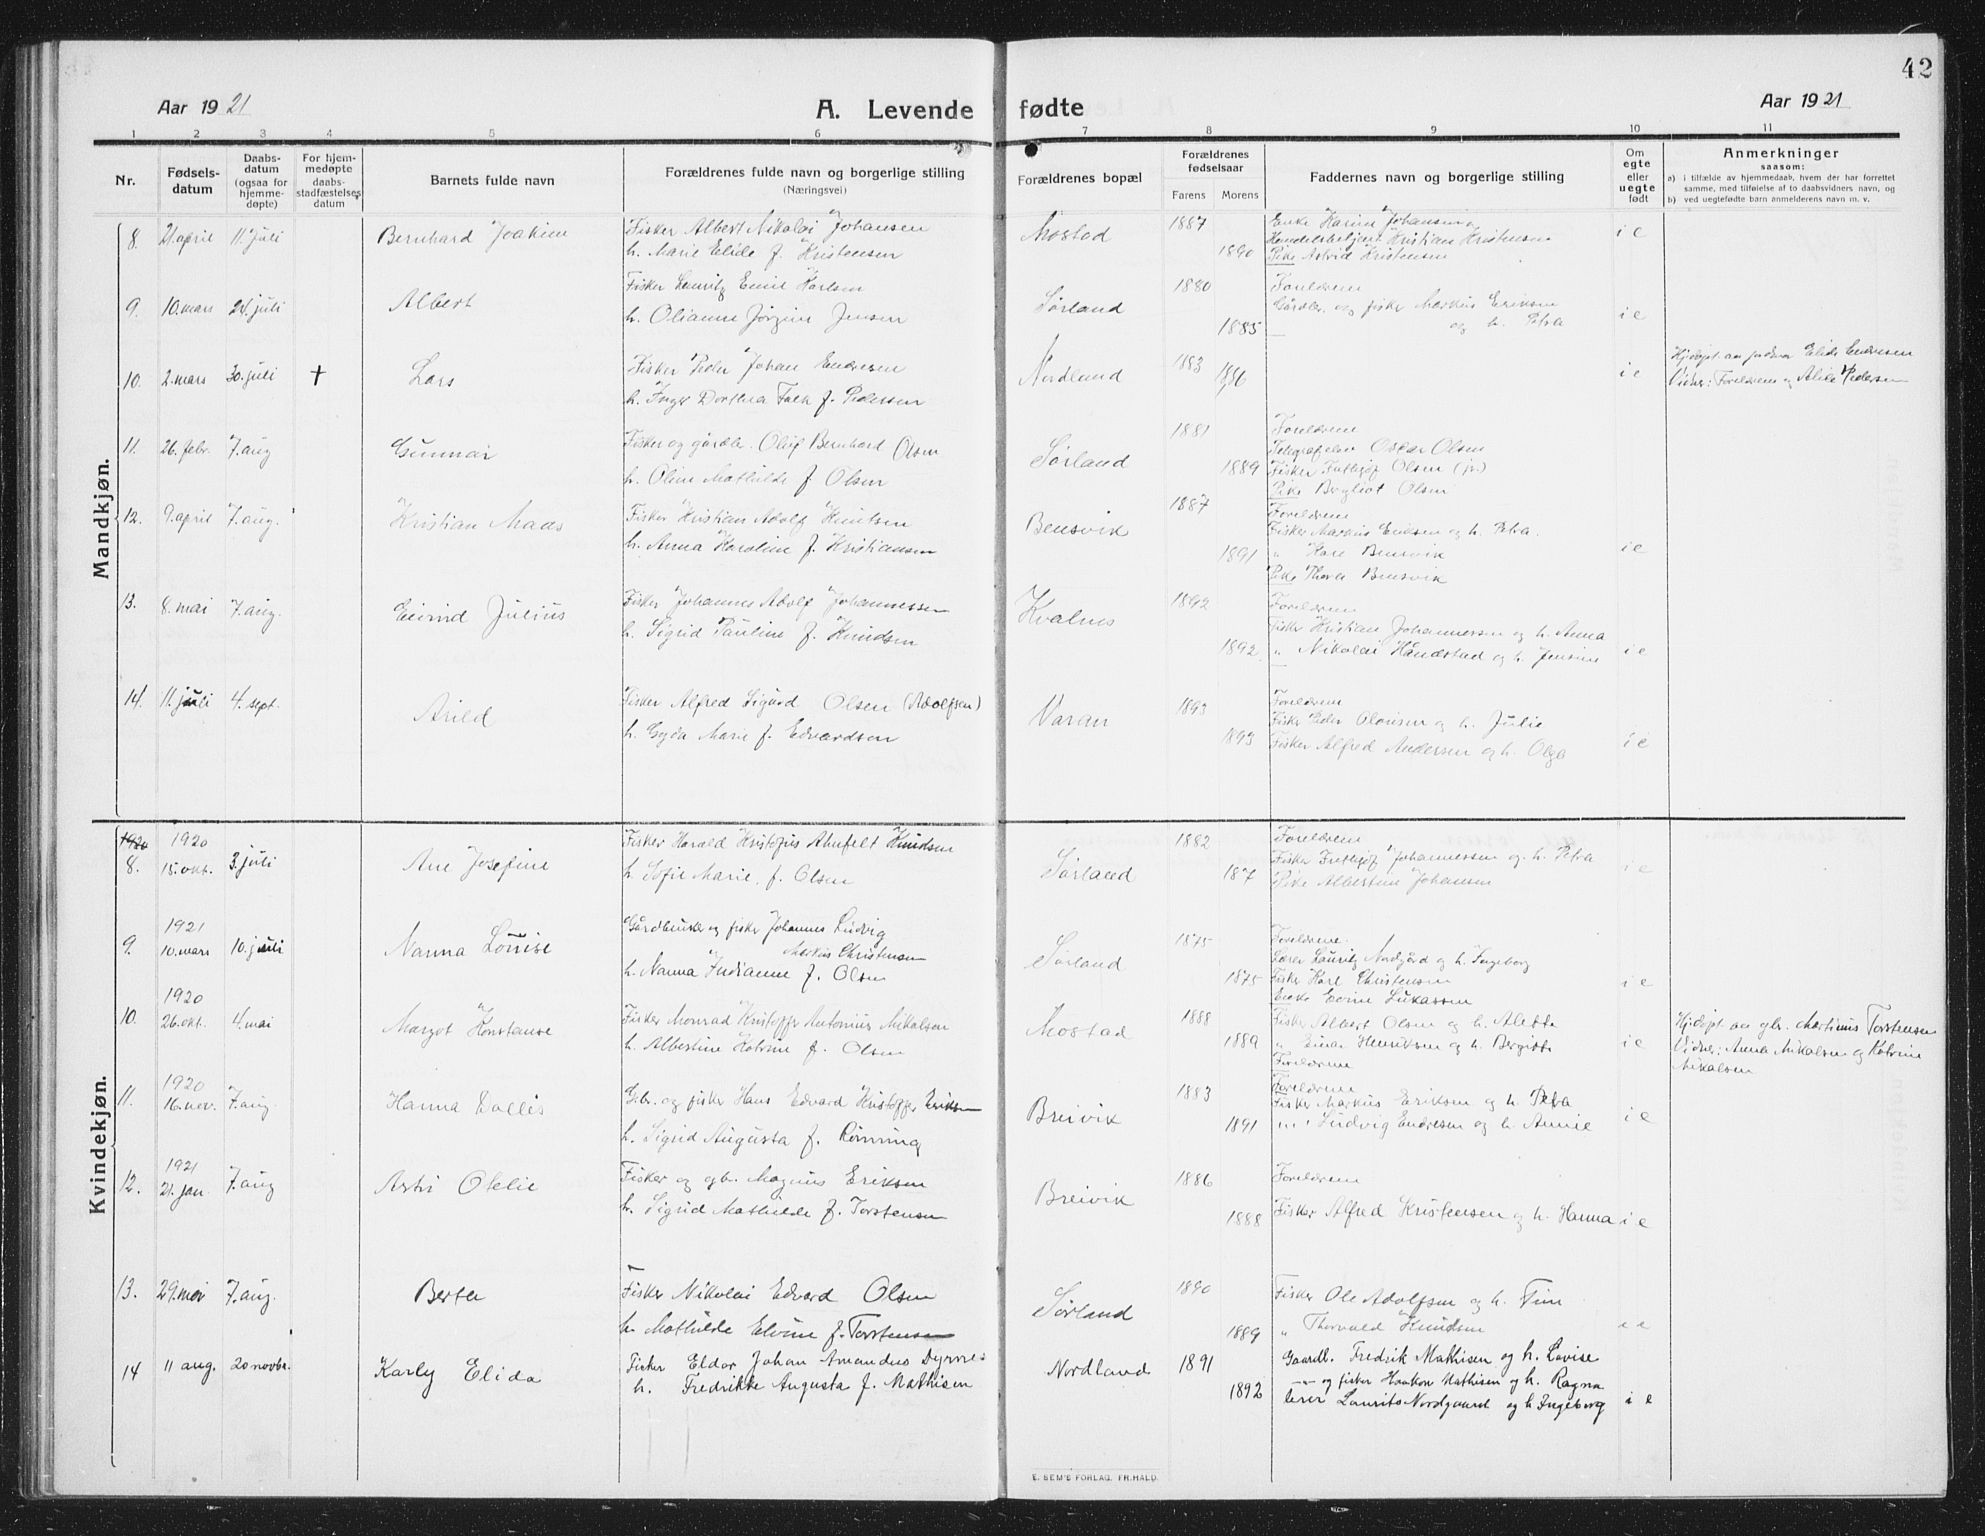 42
Aar 1921 A. Levende fødte Aar 1921
1 2 3 4 5 6 7 8 9 10 11
Nr. Fødselsdatum Daabsdatum (ogsaa for hjemmedøpte) For hjemmedøpte daabsstadfæstelses datum Barnets fulde navn Forældrenes fulde navn og borgerlige stilling (Næringsvei) Forældrenes bopæl Forældrenes fødselsaar Farens Morens Faddernes navn og borgerlige stilling Om egte eller uegte født Anmerkninger saasom: a) i tilfælde av hjemmedaab, hvem der har forrettet samme, med tilføielse af to daabsvidners navn, og b) ved uegtefødte barn anmelderens navn m. v.
Mandkjøn.
8. 21. april 11. juli Bernhard Joakim Fisker Albert Nikolai Johansen Mostad 1887 Enke Karin Johansen og
h. Marie Elide f. Kristensen 1890 Handelsbetjent Kristian Kristensen i e
Pike Astrid Kristensen
9. 10. mars 24. juli Albert Fisker Lauritz Emil Karlsen Sørland 1880 Foreldrene
h. Olianna Jørgine Jensen 1885 Gårdbr. og fisker Markus Eriksen og h. Petra i e
10. 2. mars 30. juli + Lars Fisker Peder Johan Endresen Nordland 1883 1886 i e Hj.døpt av jordmor Elide Endresen
h. Inger Dorthea Falk f. Pedersen Vidner: Foreldrene og Alida Pedersen
11. 26. febr. 7. aug Gunnar Fisker og gårdbr. Oluf Bernhard Olsen Sørland 1881 Foreldrene
Oscar Olsen
h. Oline Mathilde f Olsen 1889 Fisker Fritjof Olsen (jr.)
Pike Bergliot Olsen
12. 9. april 7. aug. Kristian Maas Fisker Kristian Adolf Knutsen Bensvik 1887 Foreldrene
Fisker Markus Eriksen og h. Petra.
h. Anna Karoline f. Kristiansen 1891 " Kare Bensvik i e
Pike Thora Bensvik
13. 8. mai 7. aug. Eivind Julius Fisker Johannes Adolf Johannessen Kvalnes 1892 Foreldrene
Fisker Kristian Johannessen og h. Anna
h. Sigrid Pauline f. Knudsen 1892. " Nikolai Håndstad og h. Jensine i e
14. 11. juli 4. sept. Arild Fisker Alfred Sigurd Olsen (Adolfsen) Varan 1893 Foreldrene
Fisker Peder og h. Julie
h. Gyda Marie f. Edvardsen 1893 Fisker Alfred Andersen og h. Olga i e
Kvindekjøn.
1920 1920
8. 15. okt. 3. juli Ane Josefine Fisker Harald Kristofus Ahnfelt Knudsen Sørland 1882 Foreldrene
Fisker Fritjof Johannessen og h. Petra i e
h. Sofie Marie f. Olsen 187 Pike Albertine Johansen
1921
9. 10. mars 10. juli Nanna Louise Gårdbruker og fisker Johannes Ludvig Markus Christensen Sørland 1875 Foreldrene.
Lærer Lauritz Nordgård og h. Ingeborg
h. Nanna Indianne f. Olsen 1875 Fisker Karl Christensen i e
Enke Evine Lukassen
1920
10. 26. okt. 4. mai Margot Konstanse Fisker Monrad Kristoffer Antonius Mikalsen Mostad 1888 Fisker Albert Olsen og h. Alette Hj.døpt av gbr. Martinus Torstensen
h. Albertine Katrine f. Olsen 1889 " Einar Henriksen og h. Bergitte i e Vidner: Anna Mikalsen og Katrine
Foreldrene Mikalsen
1920
11. 16. nov. 7. aug. Hanna Dallis Gbr. og fisker Hans Edvard Kristoffer Eriksen Breivik 1883 Foreldrene
Fisker Markus Eriksen og h. Petra
h. Sigrid Augusta f. Rønning 1891 " Ludvig Endresen og h. Annie i e
1921
12. 21. jan. 7. aug Astri Otelie Fisker og gbr. Magnus Eriksen Breivik 1886 Foreldrene
h. Sigrid Mathilde f. Torstensen 1888 Fisker Alfred Kristensen og h. Hanna i e
13. 29. mai 7. aug. Berta Fisker Nikolai Edvard Olsen Sørland 1890 Fisker Ole Adolfsen og h. Fine
h. Mathilde Elvine f. Torstensen 1889 " Thorvald Knudsen i e
14 11 aug. 20 novbr. Karly Elida Fisker Eldor Johan Amandus Dyrnes Nordland 1891 Gaardb. Fredrik Mathisen og h. Lovise
h. Fredrikke Augusta f. Mathisen 1892 —"— og fisker Haakon Mathisen og h. Ragna
lærer Laurits Nordgaard og h Ingeborg i e
E. SEM'S FORLAG, FR.HALD.